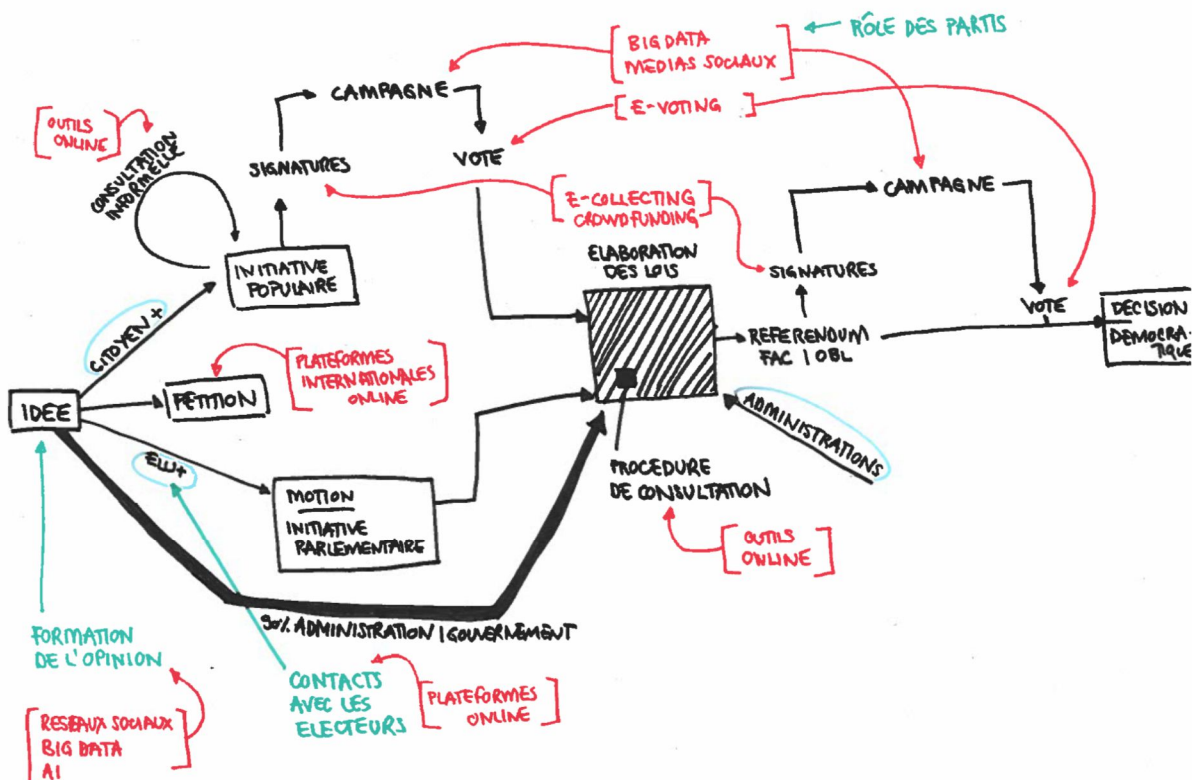 RÔLE DES PARTIS
BIG DATA
MEDIAS SOCIAUX
CAMPAGNE
[E-VOTING]
OUTILS
ONLINE
CONSULTATION
INFORMELLE
SIGNATURES
VOTE
E-COLLECTING
CROWDFUNDING
CAMPAGNE
ELABORATION
DES LOIS
SIGNATURES
INITIATIVE
POPULAIRE
VOTE
DECISION
DEMOCRA-
TIQUE
REFERENDUM
FAC | OBL
CITOYEN+
PLATEFORMES
INTERNATIONALES
ONLINE
PETITION
IDEE
ELU+
ADMINISTRATIONS
PROCEDURE
DE CONSULTATION
MOTION
INITIATIVE
PARLEMENTAIRE
OUTILS
ONLINE
90% ADMINISTRATION | GOUVERNEMENT
FORMATION
DE L'OPINION
CONTACTS
AVEC LES
ELECTEURS
PLATEFORMES
ONLINE
RESEAUX SOCIAUX
BIG DATA
AI